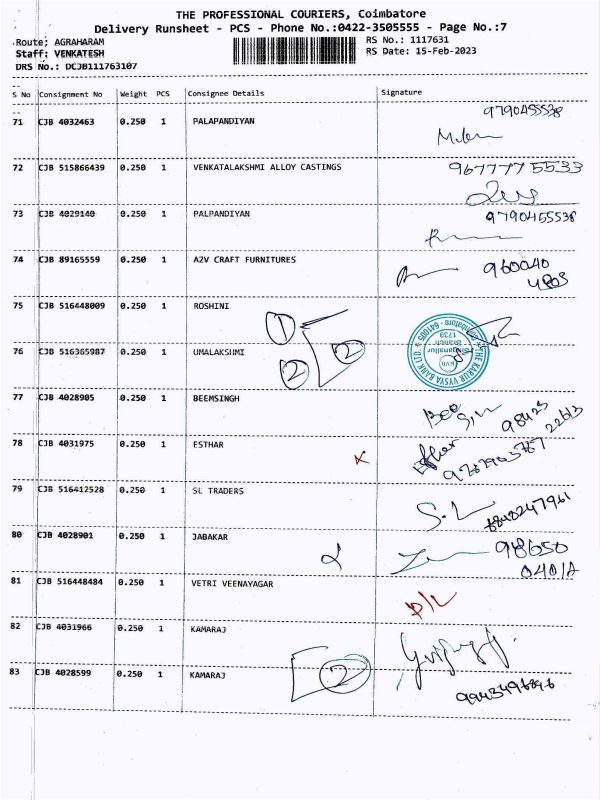 THE PROFESSIONAL COURIERS, Coimbatore
Delivery Runsheet - PCS - Phone No.:0422-3505555 - Page No.:7
Route: AGRAHARAM RS No.: 1117631
Staff: VENKATESH RS Date: 15-Feb-2023
DRS No.: DCJB111763107
S No Consignment No Weight PCS Consignee Details Signature
9790455538
71 CJB 4032463 0.250 1 PALAPANDIYAN
72 CJB 515866439 0.250 1 VENKATALAKSHMI ALLOY CASTINGS 9677775533
73 CJB 4029140 0.250 1 PALPANDIYAN 9790455538
74 CJB 89165559 0.250 1 A2V CRAFT FURNITURES 960040
75 CJB 516448009 0.250 1 ROSHINI
1
THE KARUR VYSYA BANK LTD
Coimbatore - 641005
Singanallur
Branch
1739
KVB
76 CJB 516365987 0.250 1 UMALAKSHMI 2
2
77 CJB 4028905 0.250 1 BEEMSINGH
98423
22613
78 CJB 4031975 0.250 1 ESTHAR
x
79 CJB 516412528 0.250 1 SL TRADERS
80 CJB 4028901 0.250 1 JABAKAR 98650
81 CJB 516448484 0.250 1 VETRI VEENAYAGAR
D/L
82 CJB 4031966 0.250 1 KAMARAJ
83 CJB 4028599 0.250 1 KAMARAJ 2
9943496896